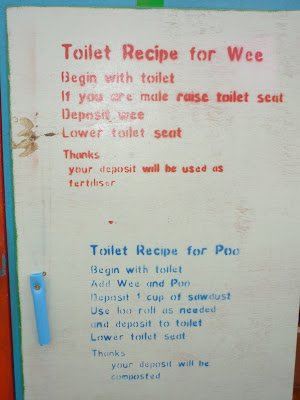 Toilet Recipe for Wee
Begin with toilet
If you are male raise toilet seat
Deposit wee
Lower toilet seat
Thanks
your deposit will be used as
fertiliser
Toilet Recipe for Poo
Begin with toilet
Add Wee and Poo
Deposit 1 cup of sawdust
Use loo roll as needed
and deposit to toilet
Lower toilet seat
Thanks
your deposit will be
composted